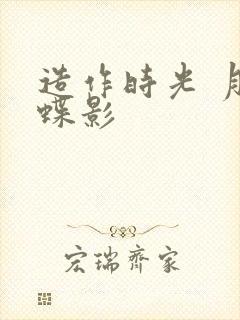 造作時光 月
蝶影
宏瑞齊家